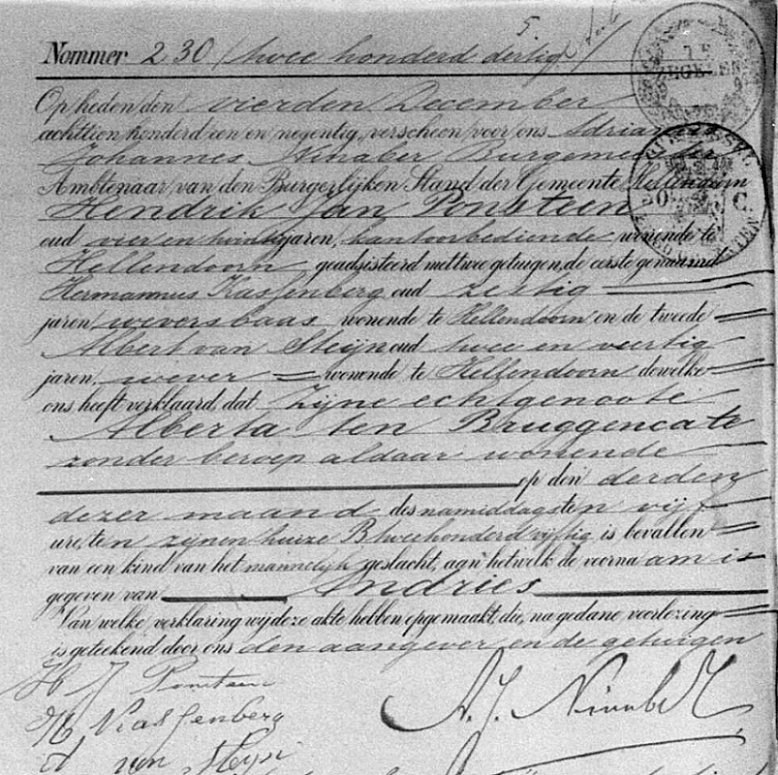 Nommer 230 (twee honderd dertig)
Op heden den vierden December
achttien honderd een en negentig, verscheen voor ons Adrianus
Johannes Ninaber Burgemeester
Ambtenaar van den Burgerlijken Stand der Gemeente Hellendoorn
Hendrik Jan Ponsteen
oud vier en twintig jaren, kantoorbediende wonende te
Hellendoorn geadsisteerd met twee getuigen, de eerste genaamd
Hermannus Kassenberg oud zestig
jaren, weversbaas wonende te Hellendoorn en de tweede
Albert van Steijn oud twee en veertig
jaren, wever wonende te Hellendoorn dewelke
ons heeft verklaard, dat Zijne echtgenoote
Alberta ten Bruggencate
zonder beroep aldaar wonende
op den derden
dezer maand des namiddags ten vijf
ure, ten zijnen huize B tweehonderd vijftig is bevallen
van een kind van het mannelijk geslacht, aan hetwelk de voornaam is
gegeven van Andries
Van welke verklaring wij deze akte hebben opgemaakt, die, na gedane voorlezing
is geteekend door ons den aangever en de getuigen
H J Ponsteen
A. J. Ninaber
H Kassenberg